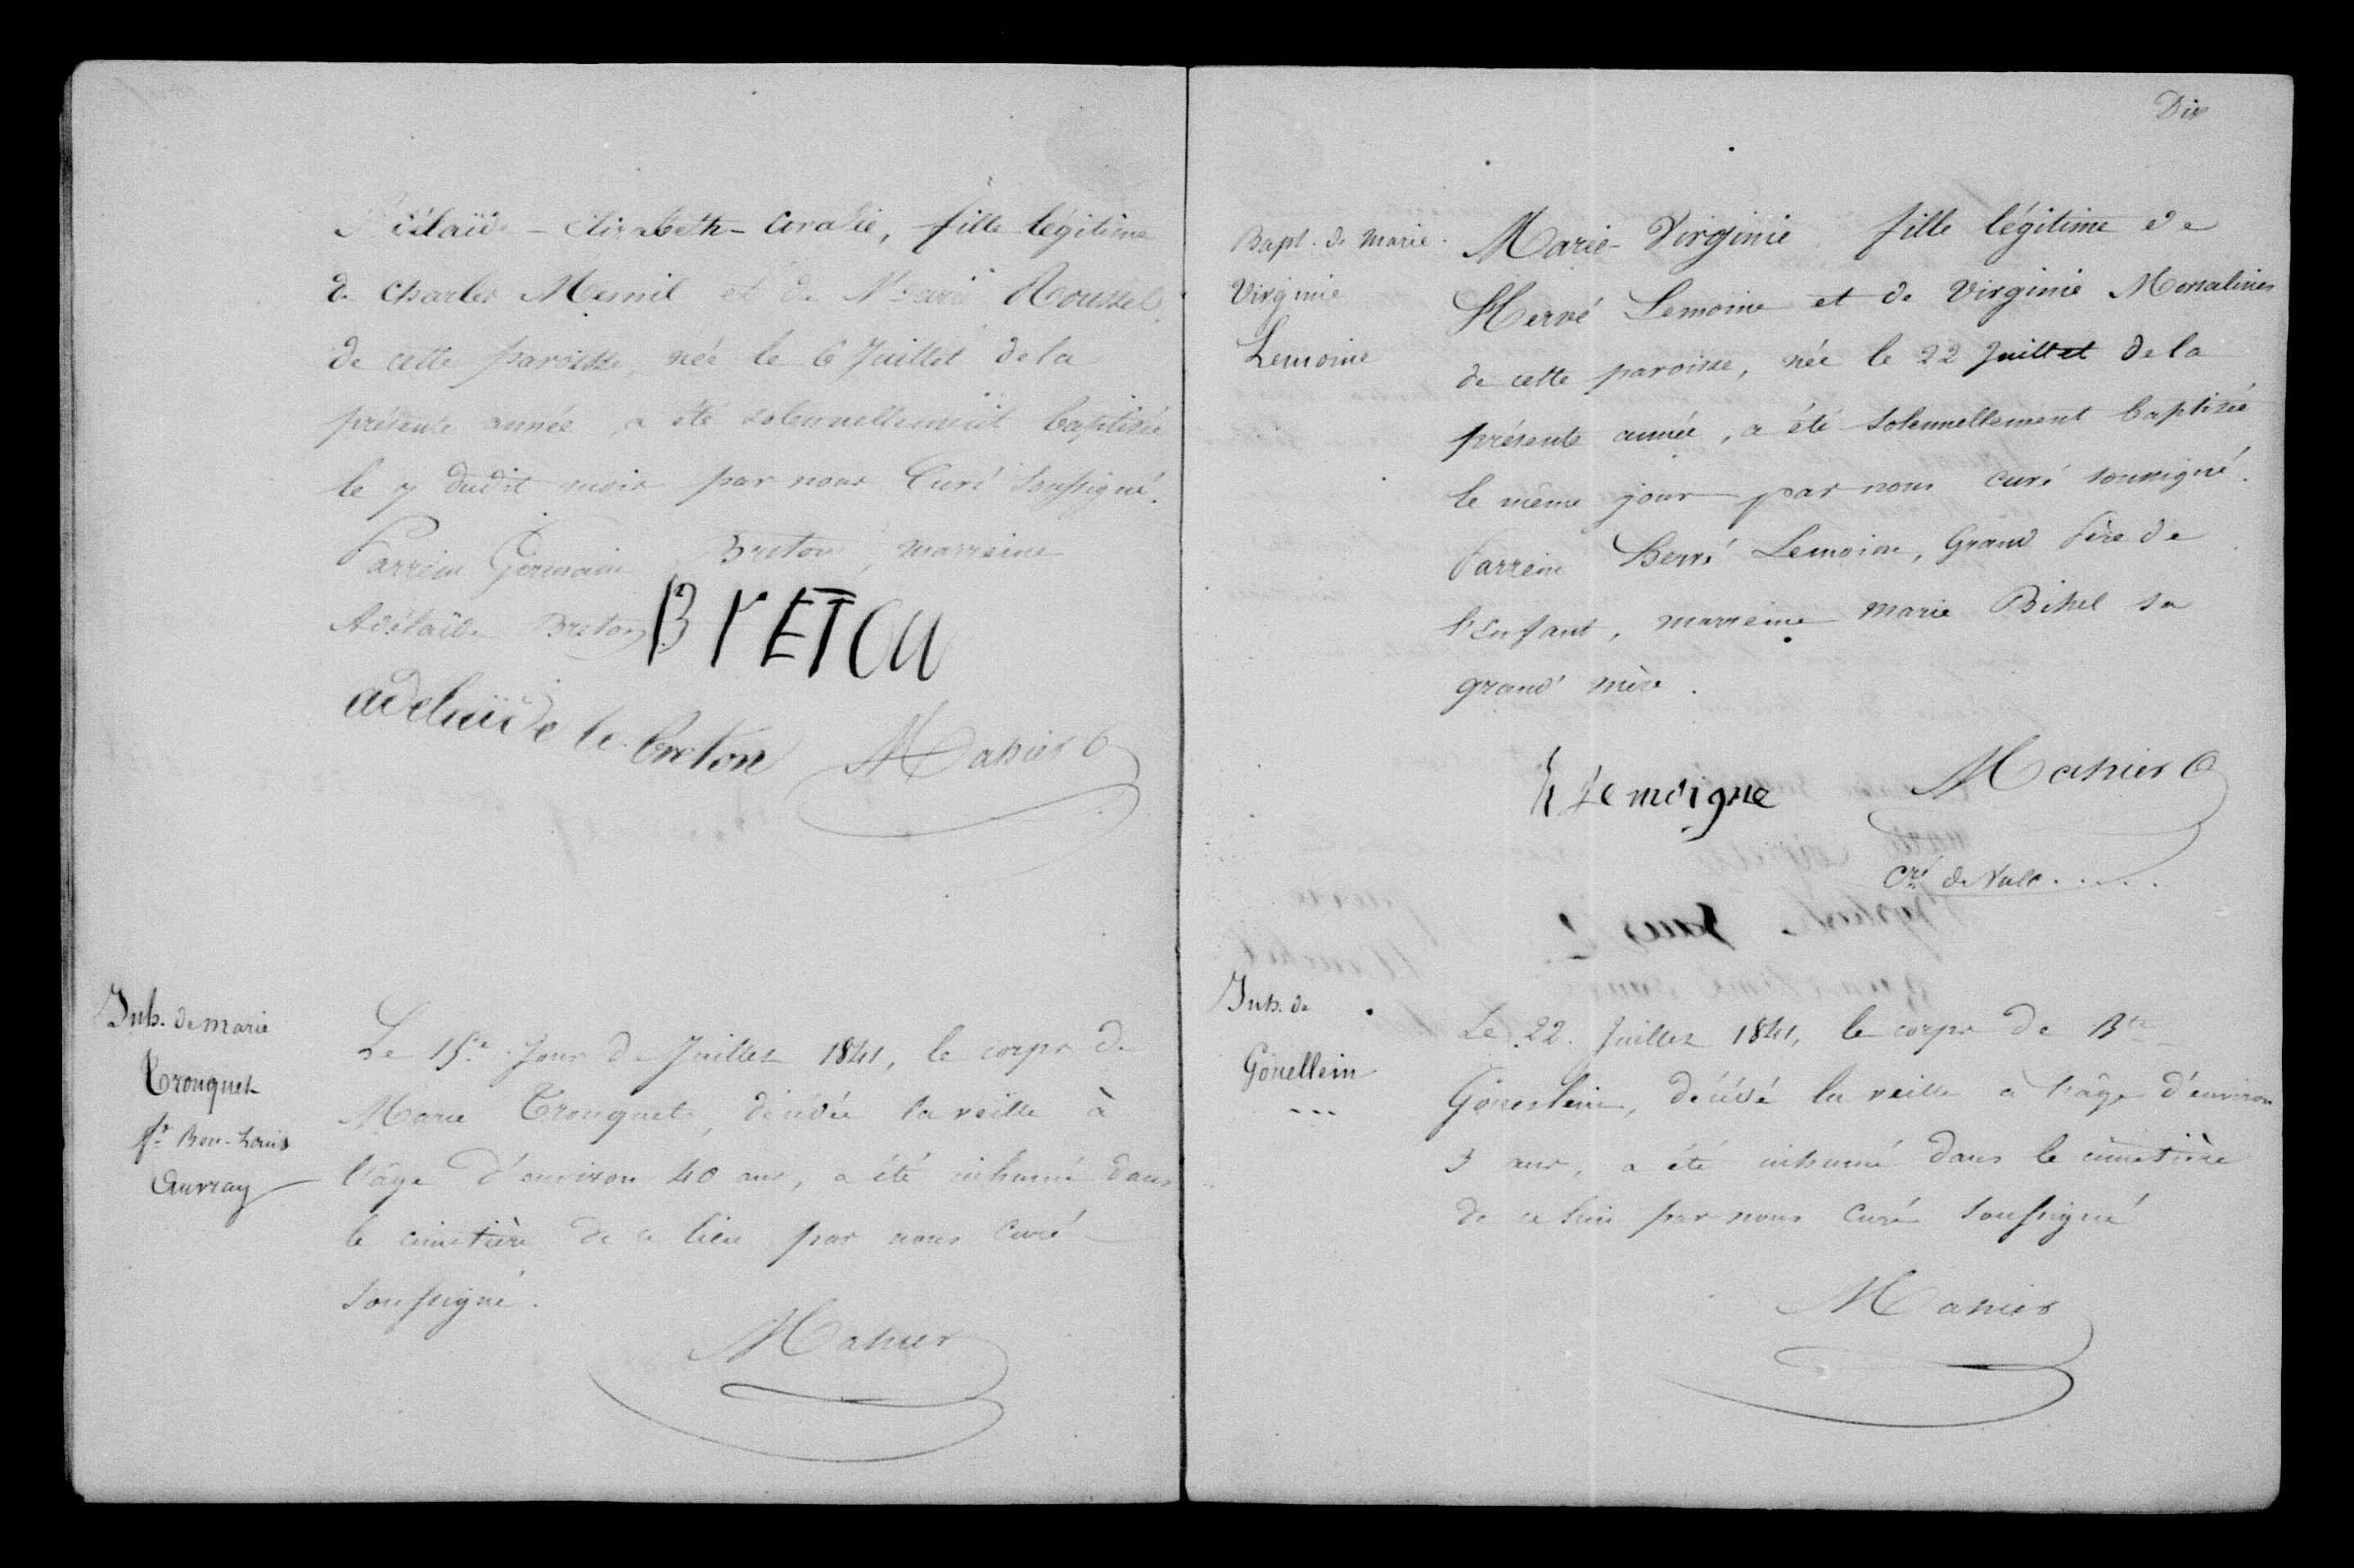 Adélaïde - Elizabeth - Coralie, fille légitime
de Charles Mesnil et de Marie Roussel,
de cette paroisse, née le 6 Juillet de la
présente année, a été solennellement baptisée
le 7 dudit mois par nous Curé soussigné.
Parrein Germain Breton, marreine
Adélaïde Breton
BrETON
adelaïde le breton Mahier
Inh. de marie
Tronquet
fe Bon-Louis
Auvray
Le 15e Jour de Juillet 1841, le corps de
Marie Tronquet, décédée la veille à
l'âge d'environ 40 ans, a été inhumé dans
le cimetière de ce lieu par nous curé
soussigné.
Mahier
Dix
Bapt. de Marie-
Virginie
Lemoine
Marie-Virginie fille légitime de
Hervé Lemoine et de Virginie
de cette paroisse, née le 22 Juillet de la
présente année, a été solennellement baptisée
le même jour par nous curé soussigné.
Parrein Hervé Lemoine, Grand Père de
l'enfant, marreine Marie Bihel sa
grand' mère.
h Lemoigne Mahier
Cré de
Inh. de
Gonellein
Le 22 Juillet 1841, le corps de Bte
décédé la veille à l'âge d'environ
ans, a été inhumé dans le cimetière
de ce lieu par nous Curé soussigné
Mahier